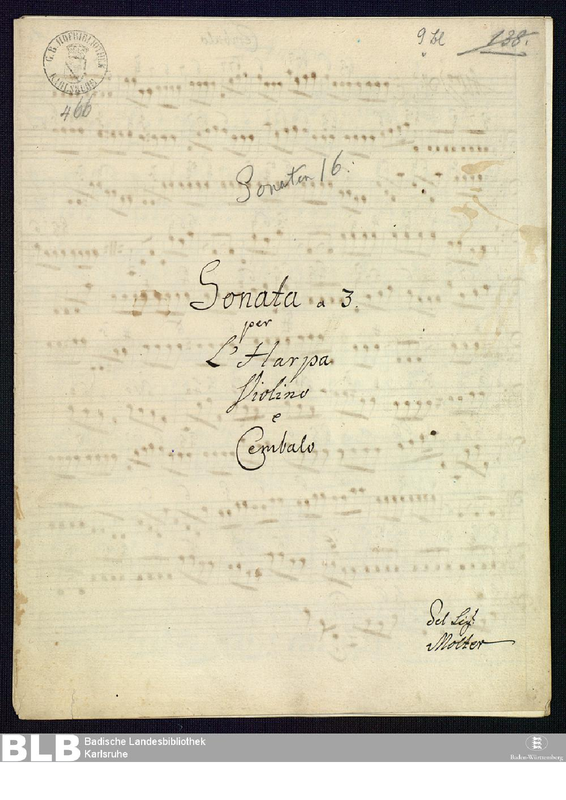 9 Bl
138.
G. B. HOFBIBLIOTHEK
KARLSRUHE
466
Sonaten 16.
Sonata a 3.
per
L'Harpa
Violino
e
Cembalo
Del Sigr
Molter
BLB Badische Landesbibliothek
Karlsruhe
Baden-Württemberg